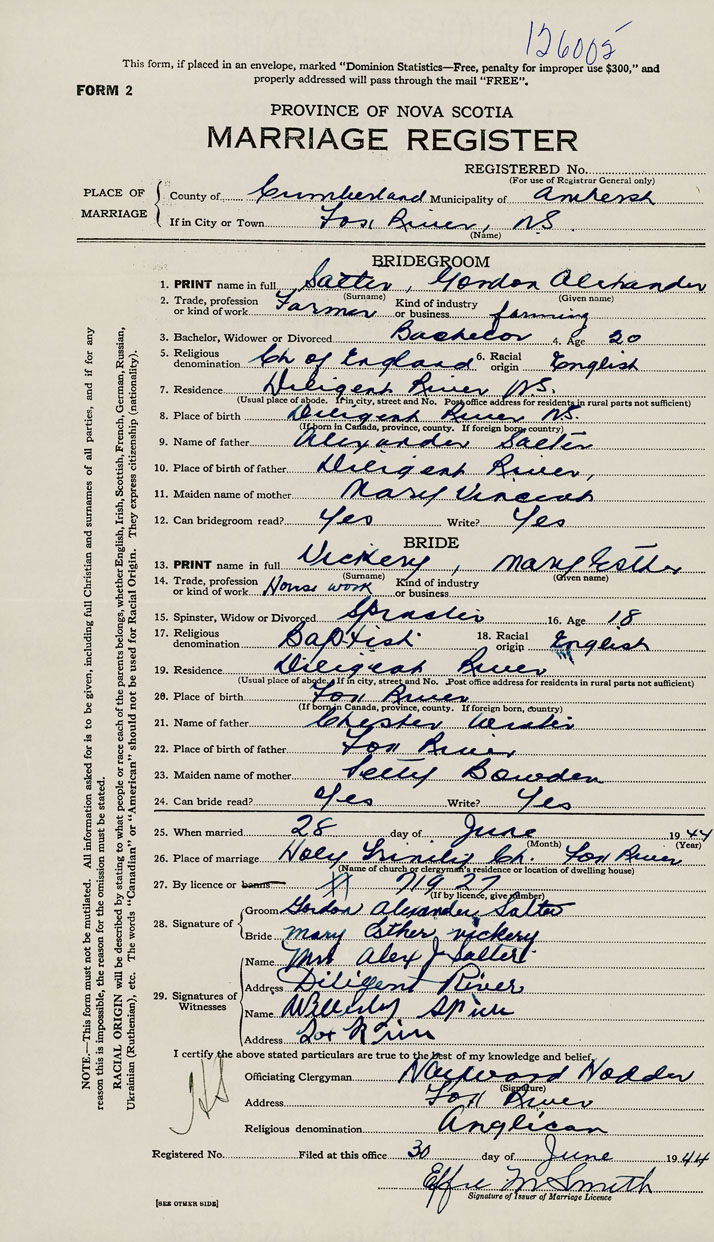 126005
This form, if placed in an envelope, marked "Dominion Statistics—Free, penalty for improper use $300," and
properly addressed will pass through the mail "FREE".
FORM 2
PROVINCE OF NOVA SCOTIA
MARRIAGE REGISTER
REGISTERED No.
(For use of Registrar General only)
PLACE OF MARRIAGE
County of Cumberland Municipality of Amherst
If in City or Town Fox River, NS.
(Name)
BRIDEGROOM
1. PRINT name in full Salter, Gordon Alexander
(Surname) (Given name)
2. Trade, profession or kind of work Farmer Kind of industry or business farming
3. Bachelor, Widower or Divorced Bachelor 4. Age 20
5. Religious denomination Ch of England 6. Racial origin English
7. Residence Diligent River NS.
(Usual place of abode. If in city, street and No. Post office address for residents in rural parts not sufficient)
8. Place of birth Diligent River NS.
(If born in Canada, province, county. If foreign born, country)
9. Name of father Alexander Salter
10. Place of birth of father Diligent River,
11. Maiden name of mother Mary Vincent
12. Can bridegroom read? Yes Write? Yes
BRIDE
13. PRINT name in full Vickery, Mary Esther
(Surname) (Given name)
14. Trade, profession or kind of work House work Kind of industry or business
15. Spinster, Widow or Divorced 16. Age 18
17. Religious denomination Baptist 18. Racial origin English
19. Residence Diligent River
(Usual place of abode. If in city, street and No. Post office address for residents in rural parts not sufficient)
20. Place of birth Fox River
(If born in Canada, province, county. If foreign born, country)
21. Name of father Chester
22. Place of birth of father Fox River
23. Maiden name of mother Bowden
24. Can bride read? Yes Write? Yes
25. When married 28 day of June 1944
(Month) (Year)
26. Place of marriage Holy Trinity Ch. Fox River
(Name of church or clergyman's residence or location of dwelling house)
27. By licence or banns # 71927
(If by licence, give number)
28. Signature of
Groom Gordon Alexander Salter
Bride Mary Esther Vickery
29. Signatures of Witnesses
Name Mrs Alex J Salter
Address Diligent River
Name
Address Fox River
I certify the above stated particulars are true to the best of my knowledge and belief.
Officiating Clergyman Haywood Hodder
(Signature)
Address Fox River
Religious denomination Anglican
Registered No. Filed at this office 30 day of June 1944
Effie M Smith
Signature of Issuer of Marriage Licence
[SEE OTHER SIDE]
NOTE.—This form must not be mutilated. All information asked for is to be given, including full Christian and surnames of all parties, and if for any
reason this is impossible, the reason for the omission must be stated.
RACIAL ORIGIN will be described by stating to what people or race each of the parents belongs, whether English, Irish, Scottish, French, German, Russian,
Ukrainian (Ruthenian), etc. The words "Canadian" or "American" should not be used for Racial Origin. They express citizenship (nationality).